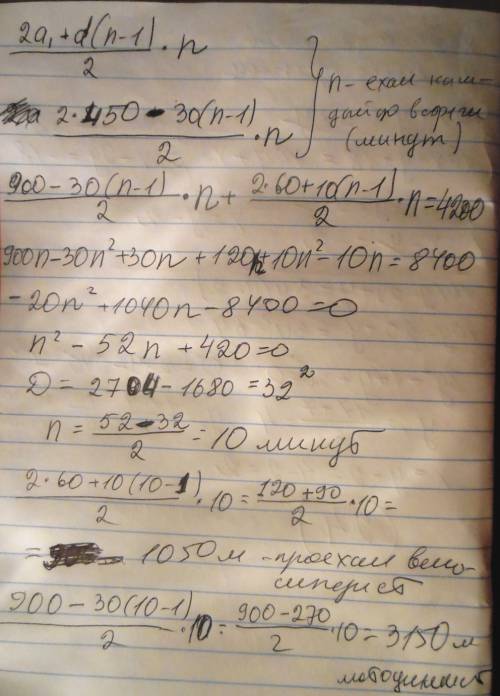 (2a₁ + d(n-1))/2 · n
(2·450 - 30(n-1))/2 · n
n - ехал каж-
дый до встречи
(минут)
(900 - 30(n-1))/2 · n + (2·60+10(n-1))/2 · n = 4200
900n - 30n² + 30n + 120n + 10n² - 10n = 8400
- 20n² + 1040n - 8400 = 0
n² - 52n + 420 = 0
D = 2704 - 1680 = 32²
n = (52-32)/2 = 10 минут
(2·60 + 10(10-1))/2 · 10 = (120 + 90)/2 · 10 =
= 1050 м - проехал вело-
сипедист
(900 - 30(10-1))/2 · 10 = (900 - 270)/2 · 10 = 3150 м
мотоциклист